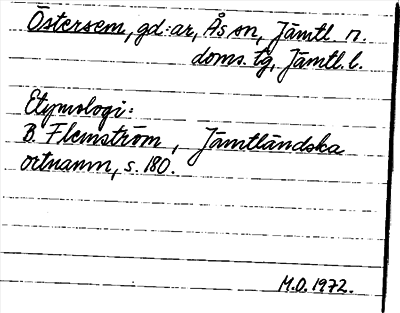 Östersem, gd:ar, Ås sn, Jämtl. n.
doms. tg, Jämtl. l.
Etymologi:
B. Flemström, Jämtländska
ortnamn, s. 180.
M.O. 1972.